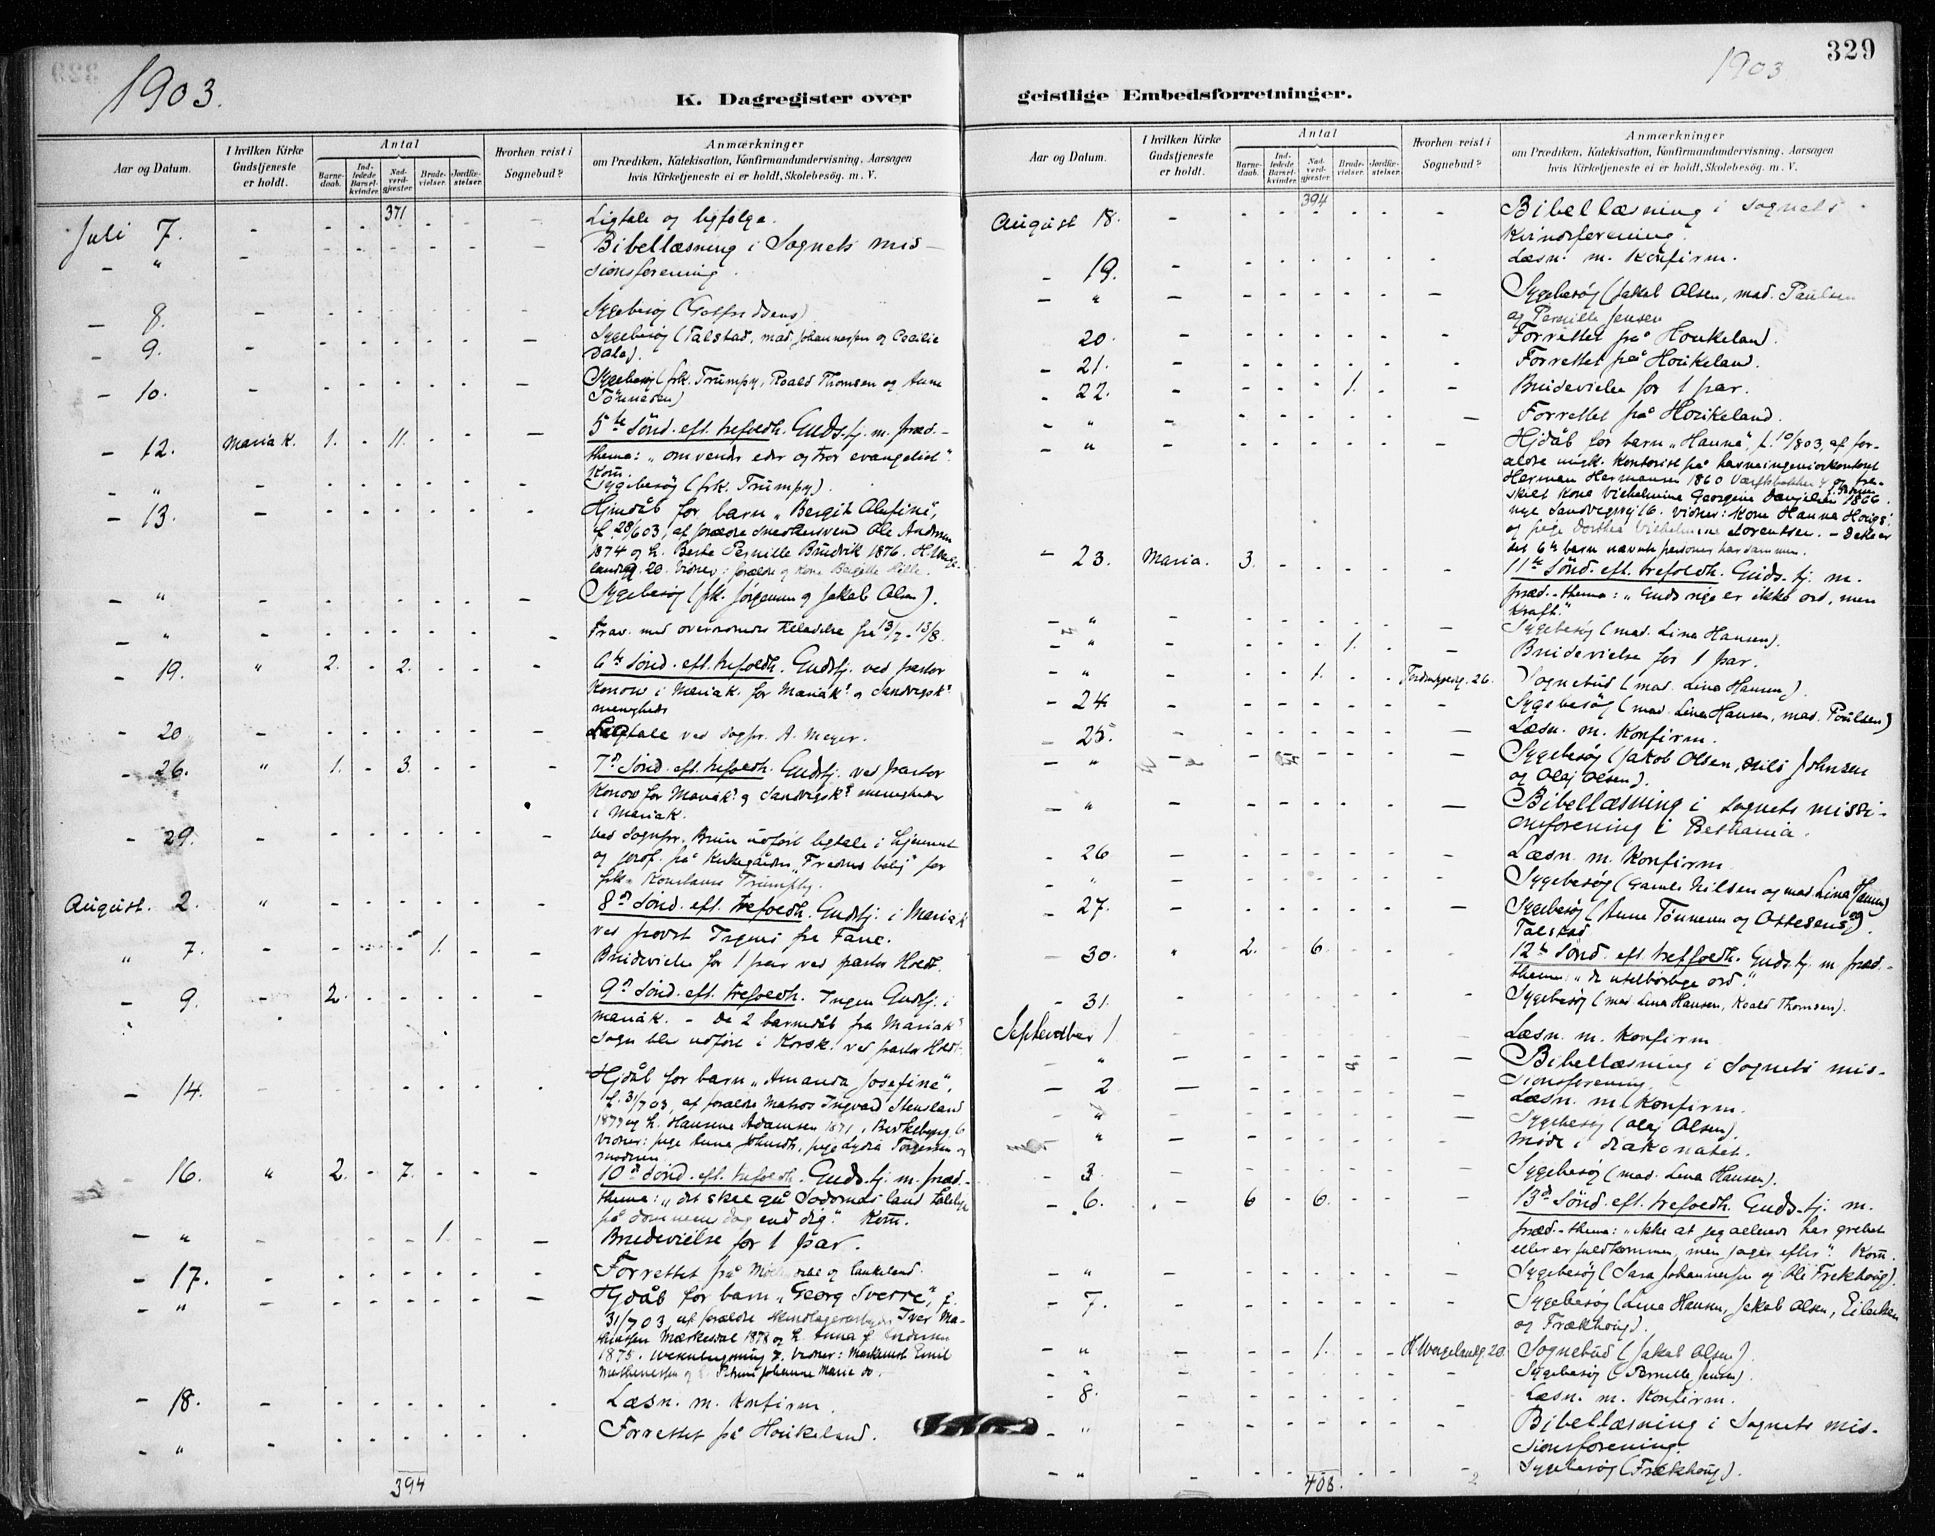 1903.
K. Dagregister over
Aar og Datum.
I hvilken Kirke Gudstjeneste er holdt.
Antal
Barnedaab.
Indledede Barselkvinder
Nadverdgjester
Brudevielser
Jordfæstelser.
Hvorhen reist i Sognebud?
Anmærkninger
om Prædiken, Katekisation, Konfirmandundervisning. Aarsagen
hvis Kirketjeneste ei er holdt, Skolebesøg. m. V.
371.
Juli 7. Ligtale og ligfølge.
- " Bibellæsning i Sognets mis-
sionsforening.
- 8. Sygebesøg
- 9. Sygebesøg (Talstad, mad. Johannessen og Cecilie
Dale).
- 10. Sygebesøg (frk. Trumpy, Roald Thomsen og Anne
Tönnesen)
- 12. Maria k. 1. - 11. 5te Sönd. eft. trefoldh. Gudstj. m. præd.-
thema: "omvender eder og tror evangeliet".
Kom.
- " Sygebesøg (frk. Trumpy).
- 13. Hjmdåb for barn "Bergit Olufine",
f. 28/6 03, af forældre Ole Andersen
1874 og h. Berte Pernille Brudvik 1876. H. Werge-
landsg 20. Vidner: forældre og Kone
- " Sygebesøg (frk. Jörgensen og Jakob Olsen).
- " Frav. med overordnedes tilladelse fra 13/7 - 13/8.
- 19. " 2. - 2. 6te Sönd. eft. trefoldh. Gudstj. ved pastor
Konow i Mariak. for Mariaks og Sandvigsks
menigheder
- 20 Ligtale ved sogpr. A. Meyer.
- 26. " 1. - 3. 7d Sönd. eft. trefoldh. Gudstj. ved pastor
Konow for Mariaks og Sandvigsks menigheder
i Mariak.
- 29. Ved Sognepr. Bruun udført ligtale i hjemmet
og jordf. på Kirkegården "Fredens bolig" for
frk. Konstance Trumpy.
August. 2. " 8d Sönd. eft. trefoldh. Gudstj. i Mariak
ved provst fra Fane.
" 7. 1. Brudevielse for 1 par ved pastor Holdt.
- 9. - 2. 9d Sönd. eft. trefoldh. Ingen Gudstj. i
mariak. - De 2 barnedåb fra Mariaks
sogn blev udført i Korsk. ved pastor Holdt.
- 14. Hjdåb for barn "Amanda Josefine",
f. 31/7 03, af forældre Matros Ingvard Stensland
1877 og h. Hansine Adamsen 1871,
Vidner: pige Anna pige Lydia Torgersen og
moderen
- 16. " 2. - 7. 10d Sönd. eft. trefoldh. Gudstj. m. præd.-
thema: "det skal gå Sodomas land tåleligere
på dommens dag end dig." Kom.
- " 1. Brudevielse for 1 par.
- 17. Forrettet på
- " Hjdåb for barn "Georg Sverre", f.
31/7 03 af forældre Iver Ma-
thiassen 1878 og h. Anna
1875. Vidner: Emil
- 18. Læsn. m. Konfirm.
- " Forrettet på Houkeland.
394
1903
329
geistlige Embedsforretninger.
Aar og Datum.
I hvilken Kirke Gudstjeneste er holdt.
Antal
Barnedaab.
Indledede Barselkvinder
Nadverdgjester
Brudevielser.
Jordfæstelser
Hvorhen reist i Sognebud?
Anmærkninger
om Prædiken, Katekisation, Konfirmandundervisning. Aarsagen
hvis Kirketjeneste ei er holdt, Skolebesøg m. V.
394
August 18. Bibellæsning i sognets
kvindeforening.
- 19. Læsn. m. Konfirm.
- " Sygebesøg (Jakob Olsen, mad. Paulsen
og Pernille Jensen
20. Forrettet på Houkeland.
- 21. Forrettet på Houkeland.
- 22. 1. Brudevielse for 1 par.
- " Forrettet på Houkeland.
- " Hjdåb for barn "Hanna", f. 10/8 03, af for-
ældre Kontorist på havneingeniørkontoret
Herman Hermansen 1860 og fra-
skilt Kone Vilhelmine Georgine Danielsen 1866.
nye Sandvigsvej 16. Vidner: Kone Hanna
og pige Dorthea Vilhelmine Lorentsen. - Dette er
det 6te barn nævnte personer har sammen.
- 23. Maria. 3. 11te Sönd. eft. trefoldh. Guds.tj. m.
præd.-thema: "Guds rige er ikke ord, men
kraft."
- " Sygebesøg (mad. Lina Hansen).
- " 1. Brudevielse for 1 par.
- " 1. 26. Sognebud (mad. Lina Hansen).
- 24 Sygebesøg (mad. Lina Hansen, mad. Poulsen)
- 25. Læsn. m. Konfirm.
- " Sygebesøg (Jakob Olsen, Nils Johnsen
og Olaj Olsen).
- " Bibellæsning i sognets missi-
onsforening i Bethania.
- 26 Læsn. m. Konfirm.
- " Sygebesøg (Gamle Nilsen og mad Lina Hansen)
- 27. Sygebesøg (Anne Tönnesen og Ottesens og
Talstad).
- 30. " 2. 6. 12te Sönd. eft. trefoldh. Guds.tj. m. præd.-
thema: "De utilbørlige ord".
- 31. Sygebesøg (mad Lina Hansen, Roald Thomsen).
September 1. Læsn. m. Konfirm.
- " Bibellæsning i Sognets mis-
sionsforening.
- 2 Læsn. m. Konfirm.
- " Sygebesøg (Olaj Olsen).
- " møde i diakonatet.
- 3. Sygebesøg (mad. Lina Hansen).
- 6. - 6 - 6. 13d Sönd. eft. trefoldh. Guds.tj. m.
præd.-thema: "ikke at jeg allerede har grebet
eller er fuldkommen, men jager efter". Kom.
- " Sygebesøg (Sara Johannessen og Ole Frekhaug).
- 7. Sygebesøg (Lina Hansen, Jakob Olsen, Eilertsen
og Frækhaug).
- " 1. H. Wergelandsg 20. Sognebud (Jakob Olsen).
- " Sygebesøg (Pernille Jensen).
- 8. Læsn. m. Konfirm.
- " Bibellæsning i Sognets mis-
sionsforening.
- " Sygebesøg (Frækhaug).
408.